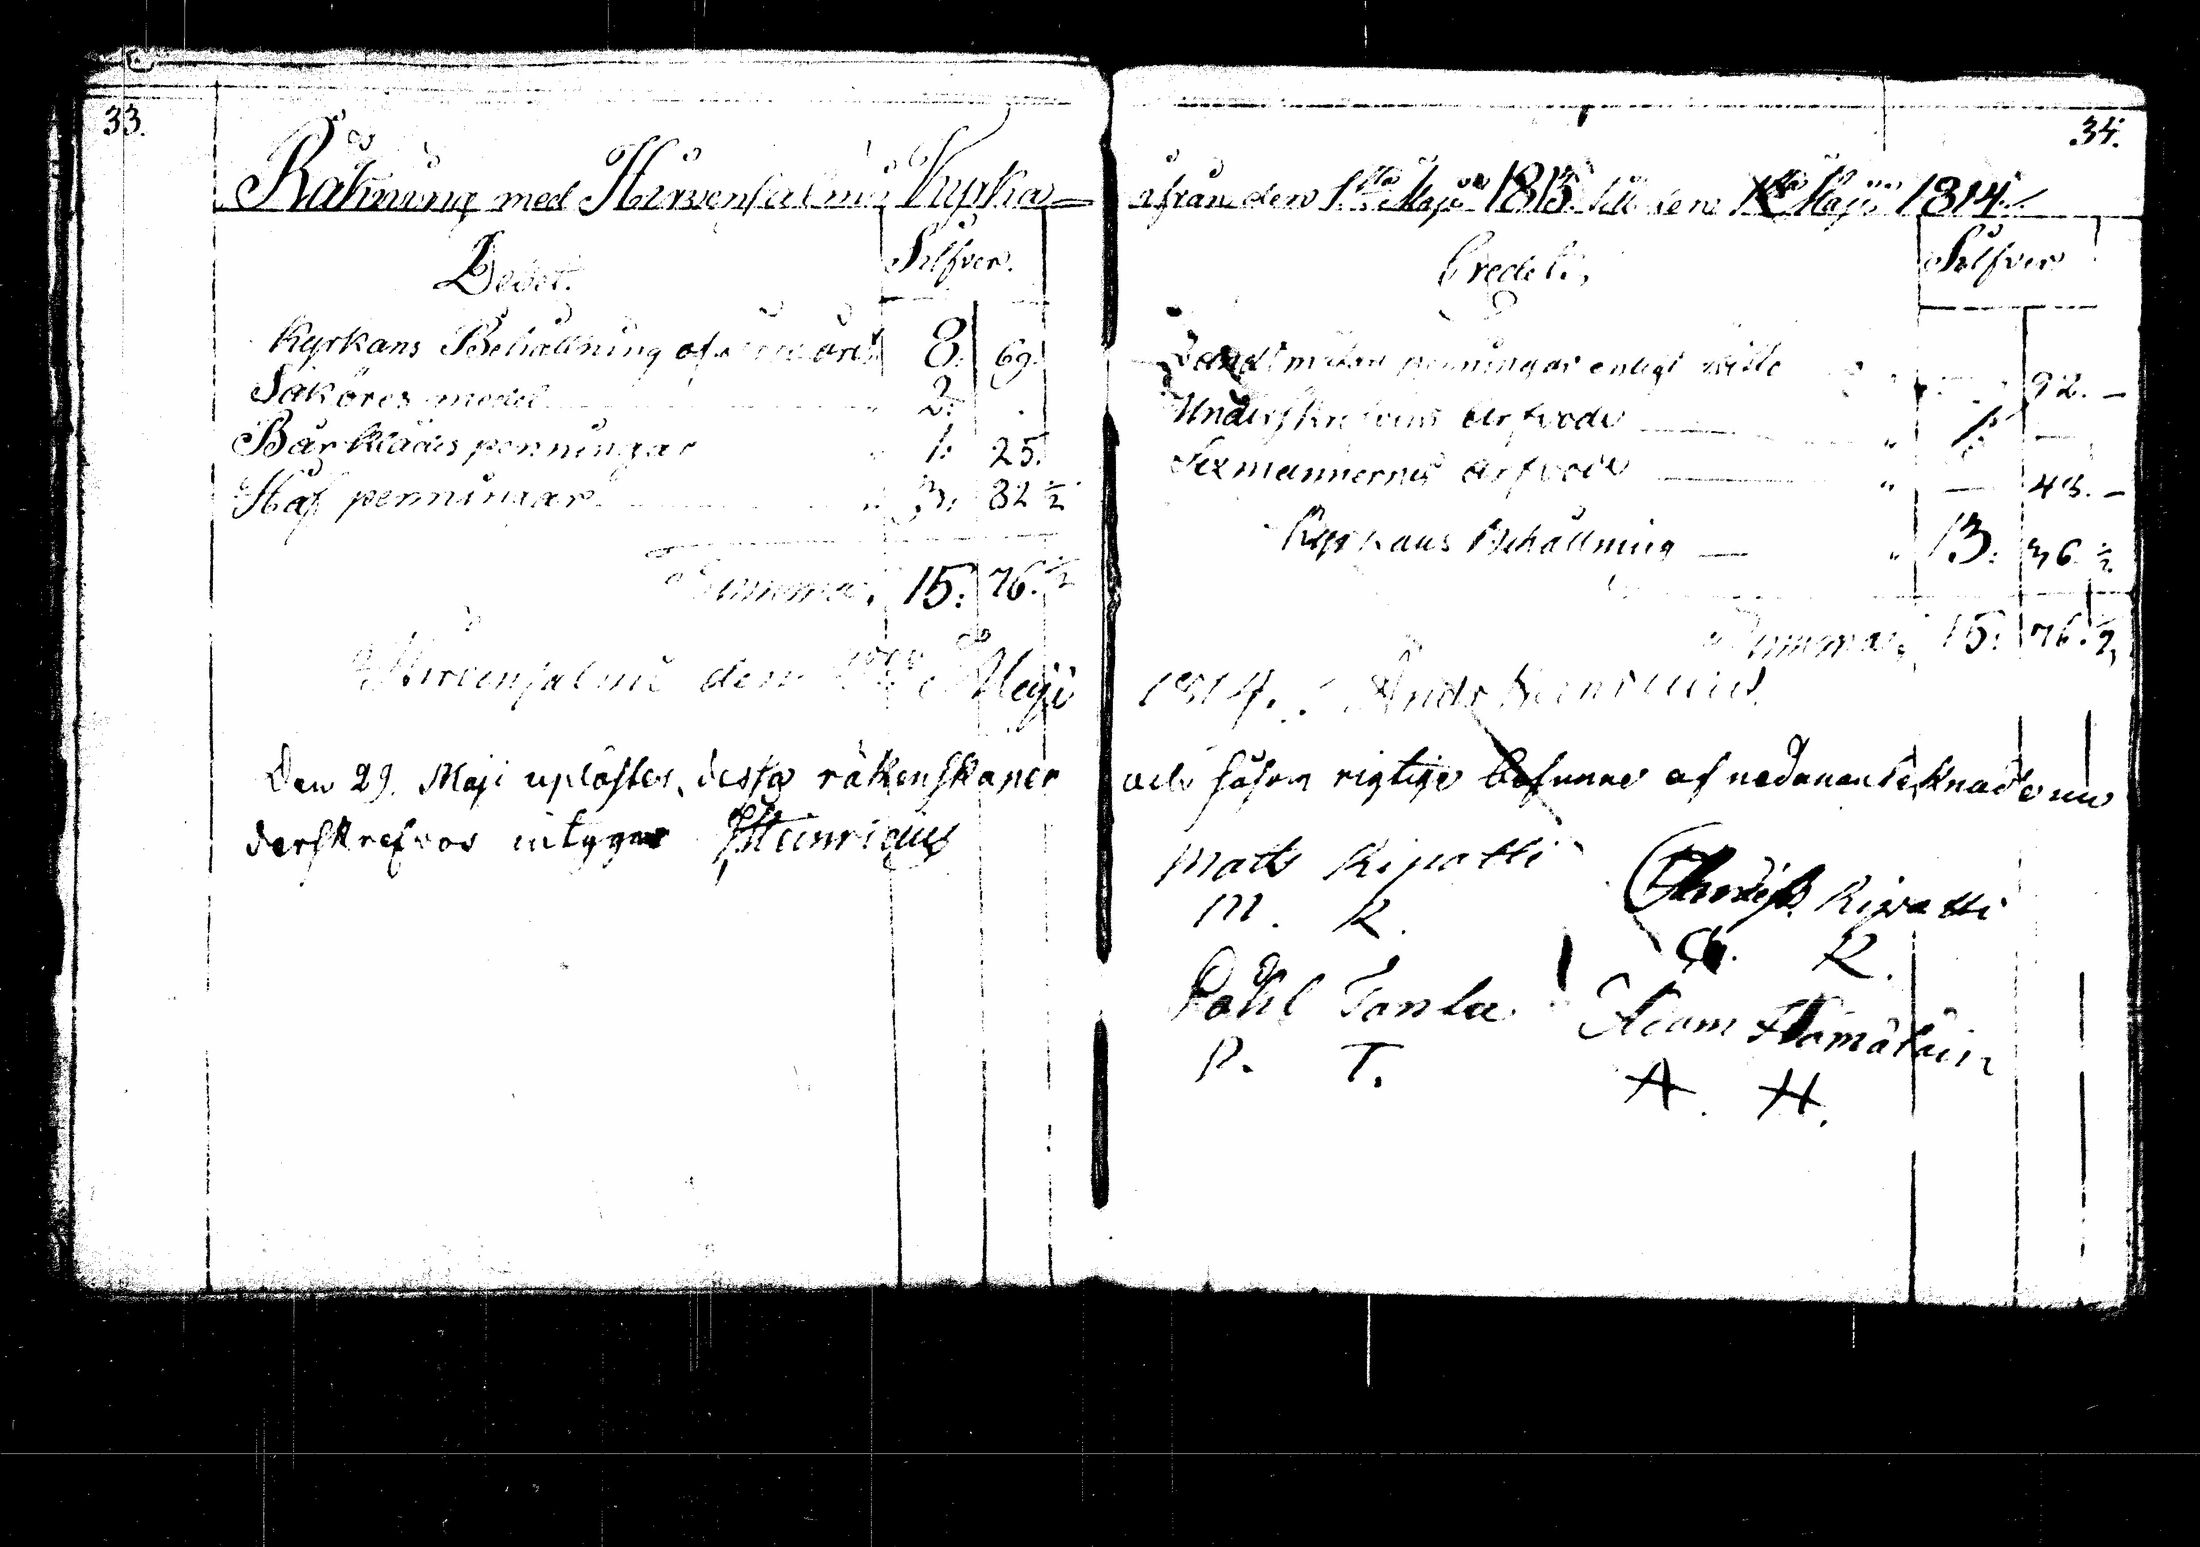 33.
Räkning med Hirvensalmi Kyrka
Debet. Silfver.
Kyrkans Behållning af 8. 69.
Saköres medel 2. .
Bårklädes penningar 1: 25.
Håf penningar 3: 82 ½
Summa, 15: 76. ½
Hirvensalmi den Maji
Den 29. Maji uplästes, dessa räkenskaper
derskrefvos intygar Heinricius
34.
ifrån den 1sta Maji 1813 till den 1sta Maji 1814.
Credet. Silfver
penningar enligt 92. —
Underskrifvens Arfvode " 1: —
Sexmännernes arfvode " — 43. —
Kyrkans Behållning — " 13: 36. ½
Summa, 15: 76. ½
1814. And Heinricius
och såsom rigtige befunne af nedanantecknade un
Mats Ripatti
M. R.
Ripatti
R.
Påhl Tonla
P. T.
Adam Hämäläin
A. H.